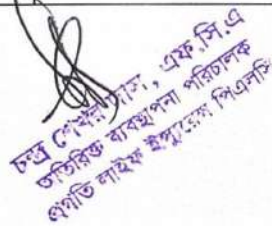 চন্দ্র শেখর দাস, এফ.সি.এ
অতিরিক্ত ব্যবস্থাপনা পরিচালক
প্রগতি লাইফ ইন্স্যুরেন্স পিএলসি